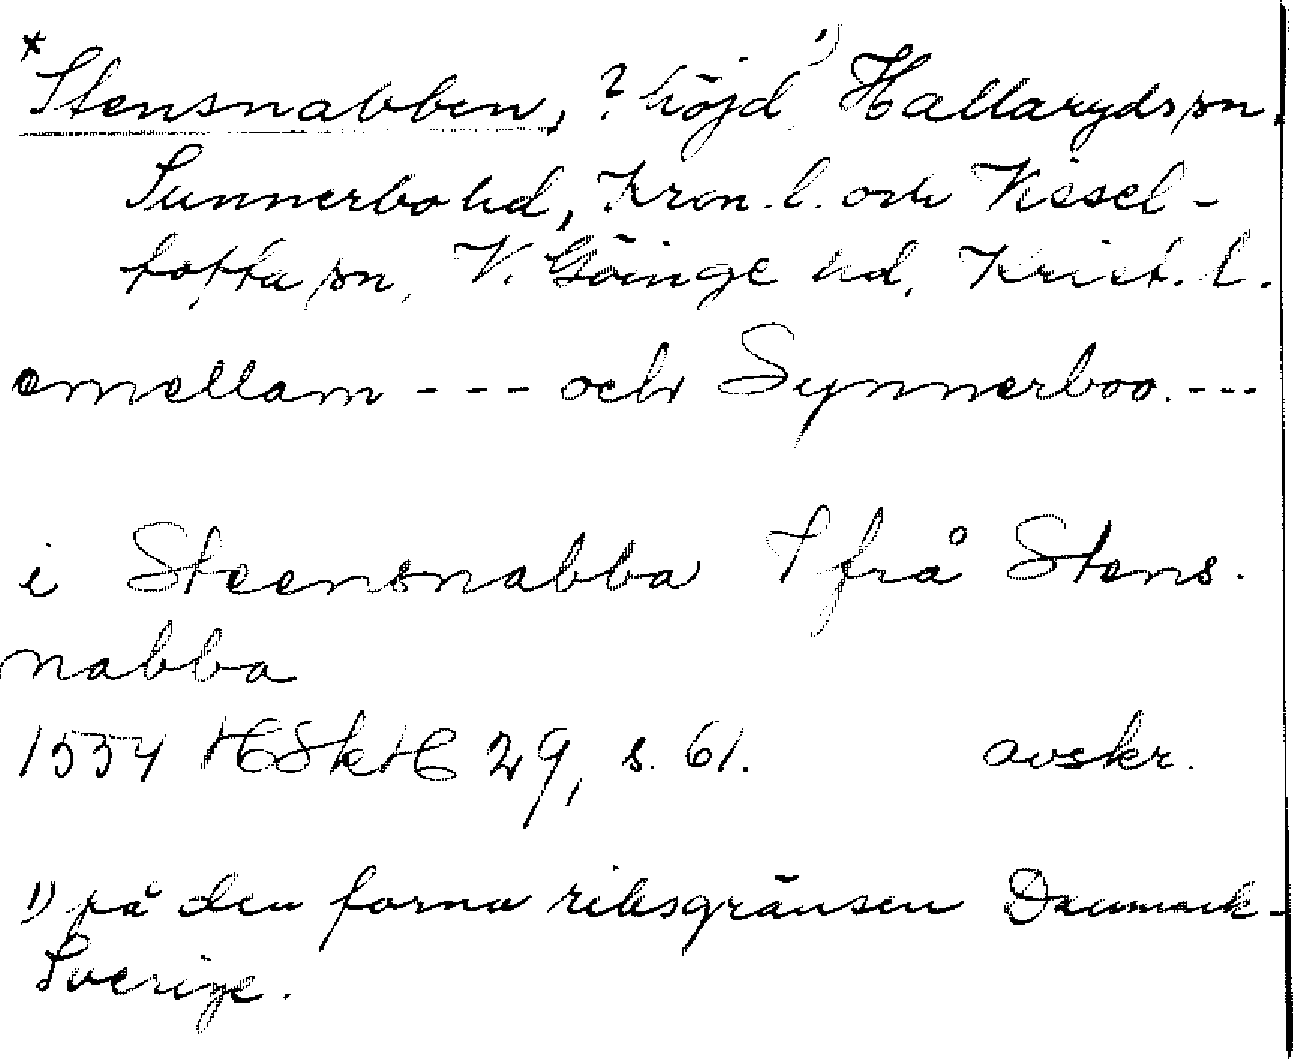 *Stensnabben, ? höjd 1) Hallaryds sn.
Sunnerbo hd, Kron. l. och Vissel-
tofta sn, V. Göinge hd, Krist. l.
emellam --- och Synnerboo. ---
i Steensnabba I frå Stens.
nabba
1554 HSkH 29, s. 61. avskr.
1) på den forna riksgränsen Danmark-
Sverige.